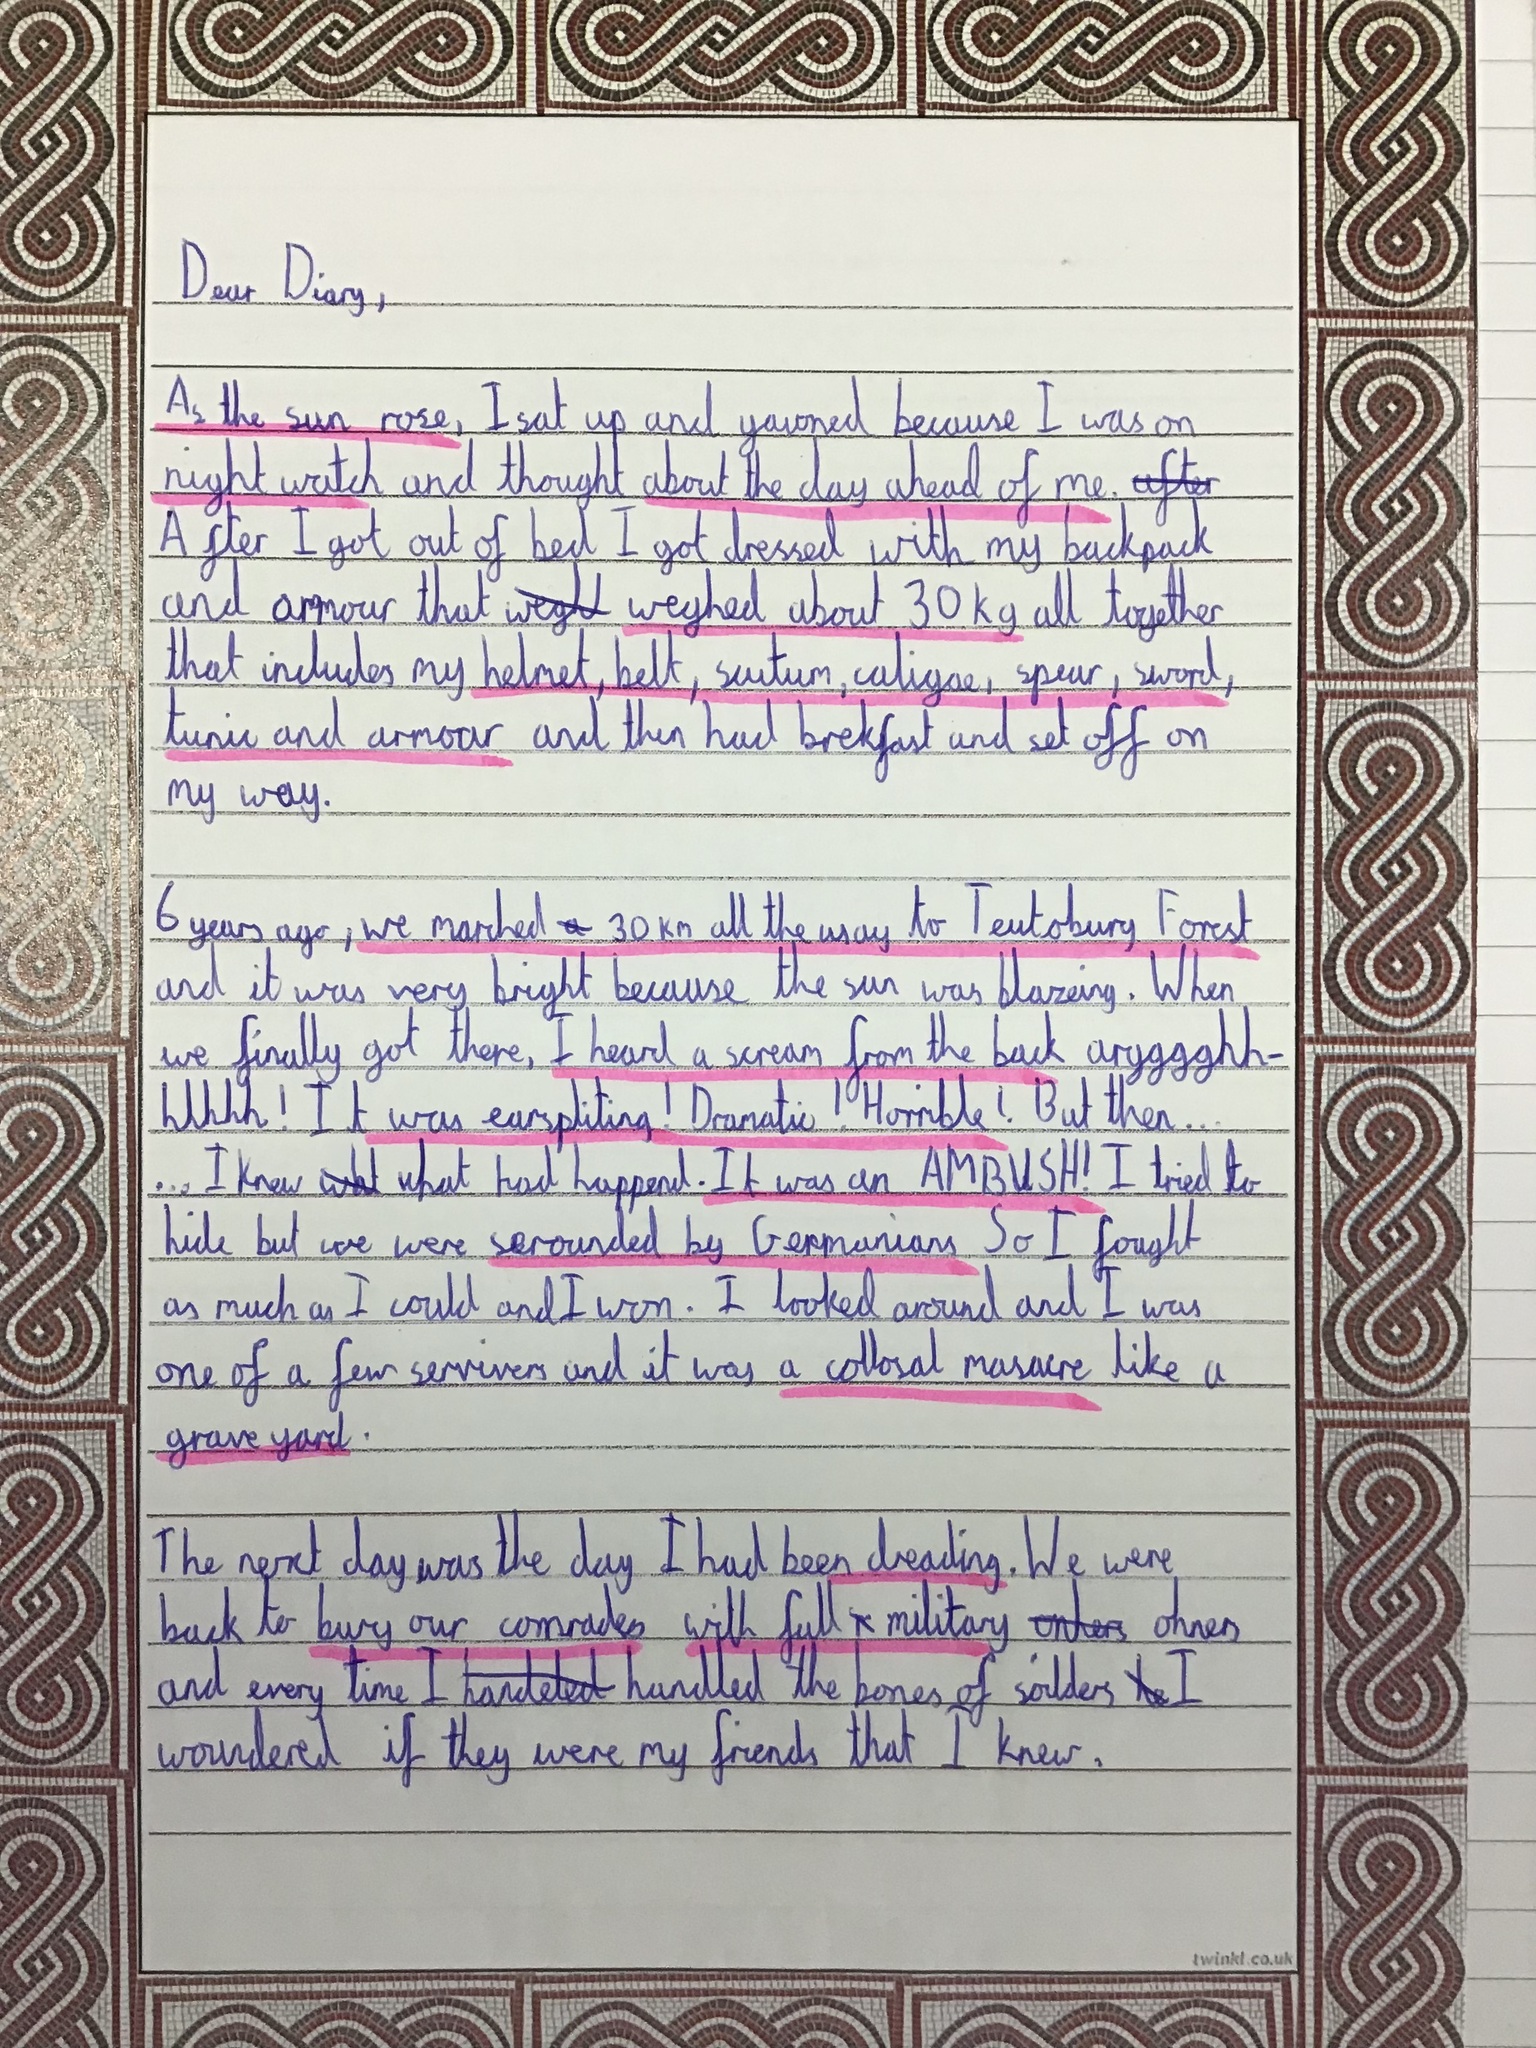 Dear Diary,
As the sun rose, I sat up and yawned because I was on
night watch and thought about the day ahead of me. after
After I got out of bed I got dressed with my backpack
and armour that weght weghed about 30kg all together
that includes my helmet, belt, scutum, caligae, spear, sword,
tunic and armoar and then had brekfast and set off on
my way.
6 years ago, we marched a 30km all the way to Teutobury Forest
and it was very bright because the sun was blazeing. When
we finally got there, I heard a scream from the back arygggghh-
hhhhh! It was earspliting! Dramatic! Horrible! But then...
... I knew what what had happend. It was an AMBUSH! I tried to
hide but we were serounded by Germanians So I fought
as much as I could and I won. I looked around and I was
one of a few servivers and it was a collosal masacre like a
grave yard.
The next day was the day I had been dreading. We were
back to bury our comrades with full military onhers ohners
and every time I handeled handled the bones of soilders he I
woundered if they were my friends that I knew.
twinkl.co.uk